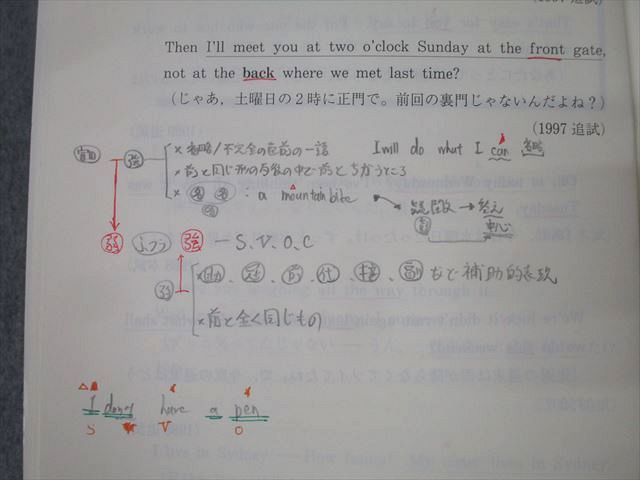 (1997 追試)
Then I'll meet you at two o'clock Sunday at the front gate,
not at the back where we met last time?
(じゃあ，土曜日の２時に正門で。前回の裏門じゃないんだよね？)
(1997 追試)
強 × 省略/不完全の直前の一語 I will do what I can 省略
× 前と同じ形の与後の中で前とちがうところ
× 名 名 : a mountain bike 疑問 → 答え
名 中心
弱 ふつう 強 — S.V.O.C
弱 × 助、冠、前、代、接、副 など補助的表現
× 前と全く同じもの
I don't have a pen
S V O